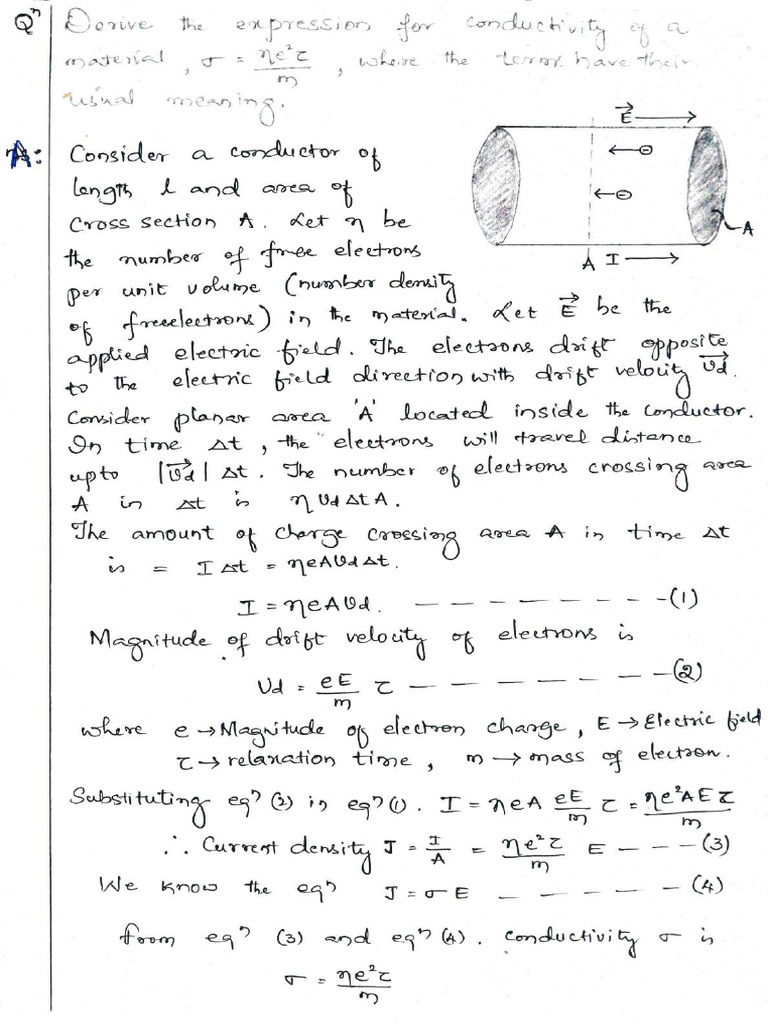 Qⁿ Derive the expression for conductivity of a
material, σ = ηe²τ/m, where the terms have their
usual meaning.
A: Consider a conductor of
length l and area of
cross section A. Let η be
the number of free electrons
per unit volume (number density
of freeelectrons) in the material. Let E⃗ be the
applied electric field. The electrons drift opposite
to the electric field direction with drift velocity v⃗d.
Consider planar area 'A' located inside the conductor.
In time Δt, the electrons will travel distance
upto |v⃗d| Δt. The number of electrons crossing area
A in Δt is η vd Δt A.
The amount of charge crossing area A in time Δt
is = I Δt = ηeAvdΔt.
I = ηeAvd. — — — — — — — — -(1)
Magnitude of drift velocity of electrons is
vd = eE/m τ — — — — — — — —(2)
where e → Magnitude of electron charge, E → Electric field
τ → relaxation time, m → mass of electron.
Substituting eqⁿ (2) in eqⁿ (1). I = ηeA eE/m τ = ηe²AEτ/m
∴ Current density J = I/A = ηe²τ/m E — — — (3)
We know the eqⁿ J = σE — — — — — — (4)
from eqⁿ (3) and eqⁿ (4). conductivity σ is
σ = ηe²τ/m
E⃗ →
← ⊖
← ⊖
A
A I →